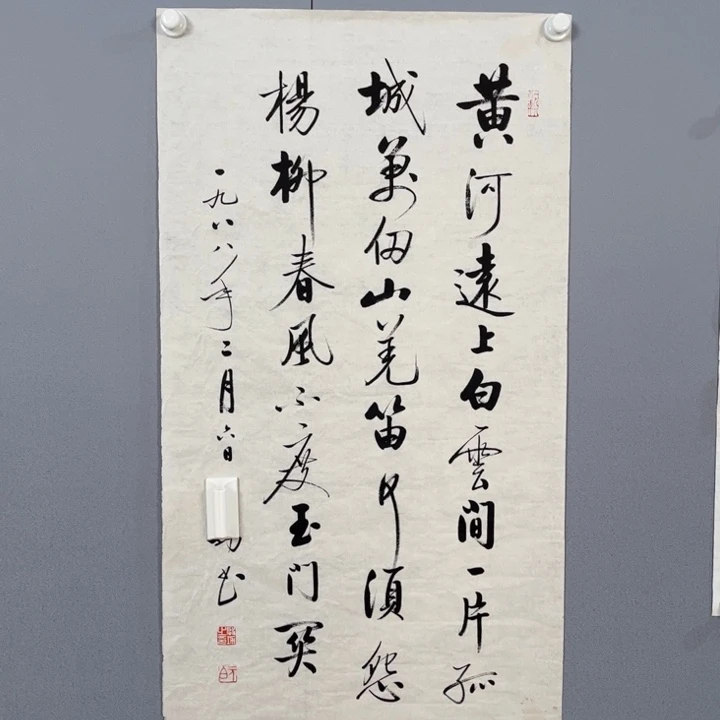 黄河遠上白雲間一片孤
城萬仞山羌笛何須怨
楊柳春風不度玉門関
一九八八年二月六日